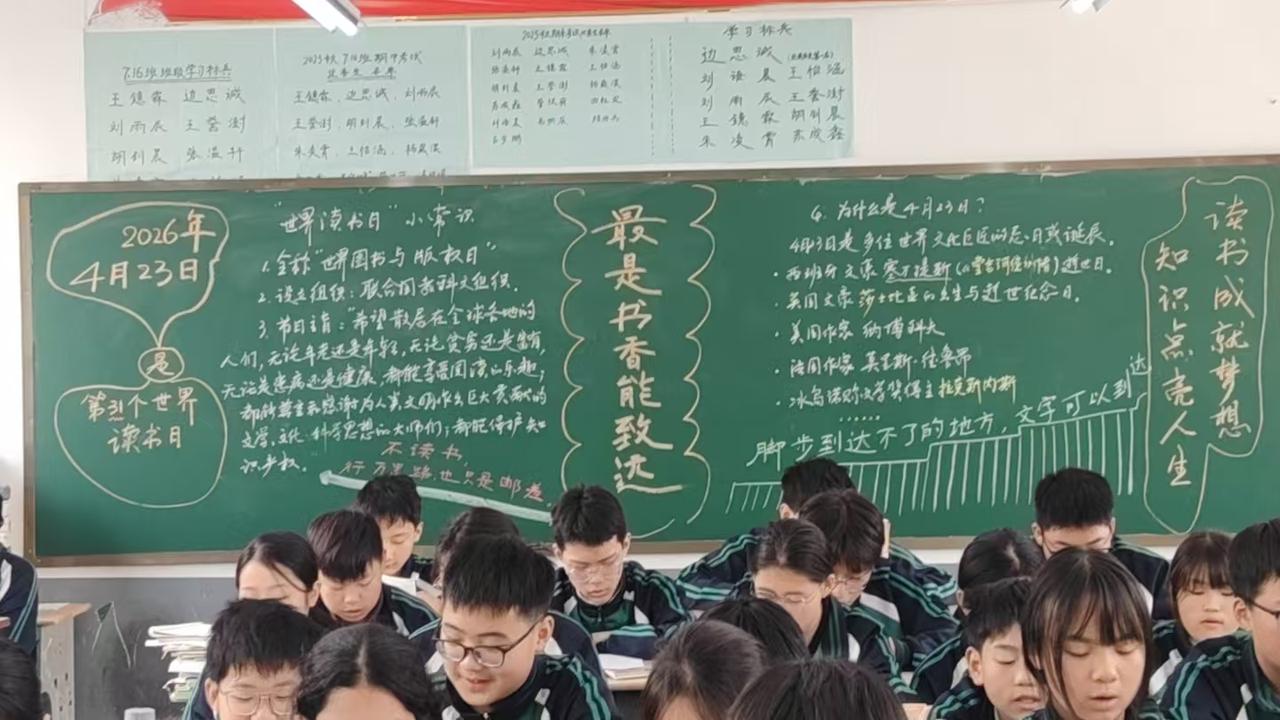 7.16班班级学习标兵
王镱霖 边思诚
刘雨辰 王誉澍
胡钊晨 张益轩
2025秋7.16班期中考试
优秀生名单
王镱霖、边思诚、刘雨辰
王誉澍、胡钊晨、张益轩
朱凌霄、王怡涵、杨宸淏
刘雨辰 边思诚 朱凌霄
学习标兵
边思诚
刘语晨 王怡涵
刘雨辰 王誉澍
王镱霖 胡钊晨
朱凌霄 苏成鑫
2026年
4月23日
是
第31个世界
读书日
“世界读书日”小常识
1.全称“世界图书与版权日”
2.设立组织：联合国教科文组织.
3.节日主旨：“希望散居在全球各地的
人们，无论年老还是年轻，无论贫穷还是富有，
无论是患病还是健康，都能享受阅读的乐趣，
都能尊重和感谢为人类文明作出巨大贡献的
文学、文化、科学思想的大师们；都能保护知
识产权。
不读书，
行万里路也只是邮差
最是书香能致远
4.为什么是4月23日？
4月23日是多位世界文化巨匠的忌日或诞辰。
·西班牙文豪塞万提斯(《堂吉诃德》)逝世日。
·英国文豪莎士比亚的出生与逝世纪念日。
·美国作家 纳博科夫
·法国作家 莫里斯·德鲁昂
·冰岛诺贝尔文学奖得主 拉克斯内斯
······
脚步到达不了的地方，文字可以到达
读书成就梦想
知识点亮人生